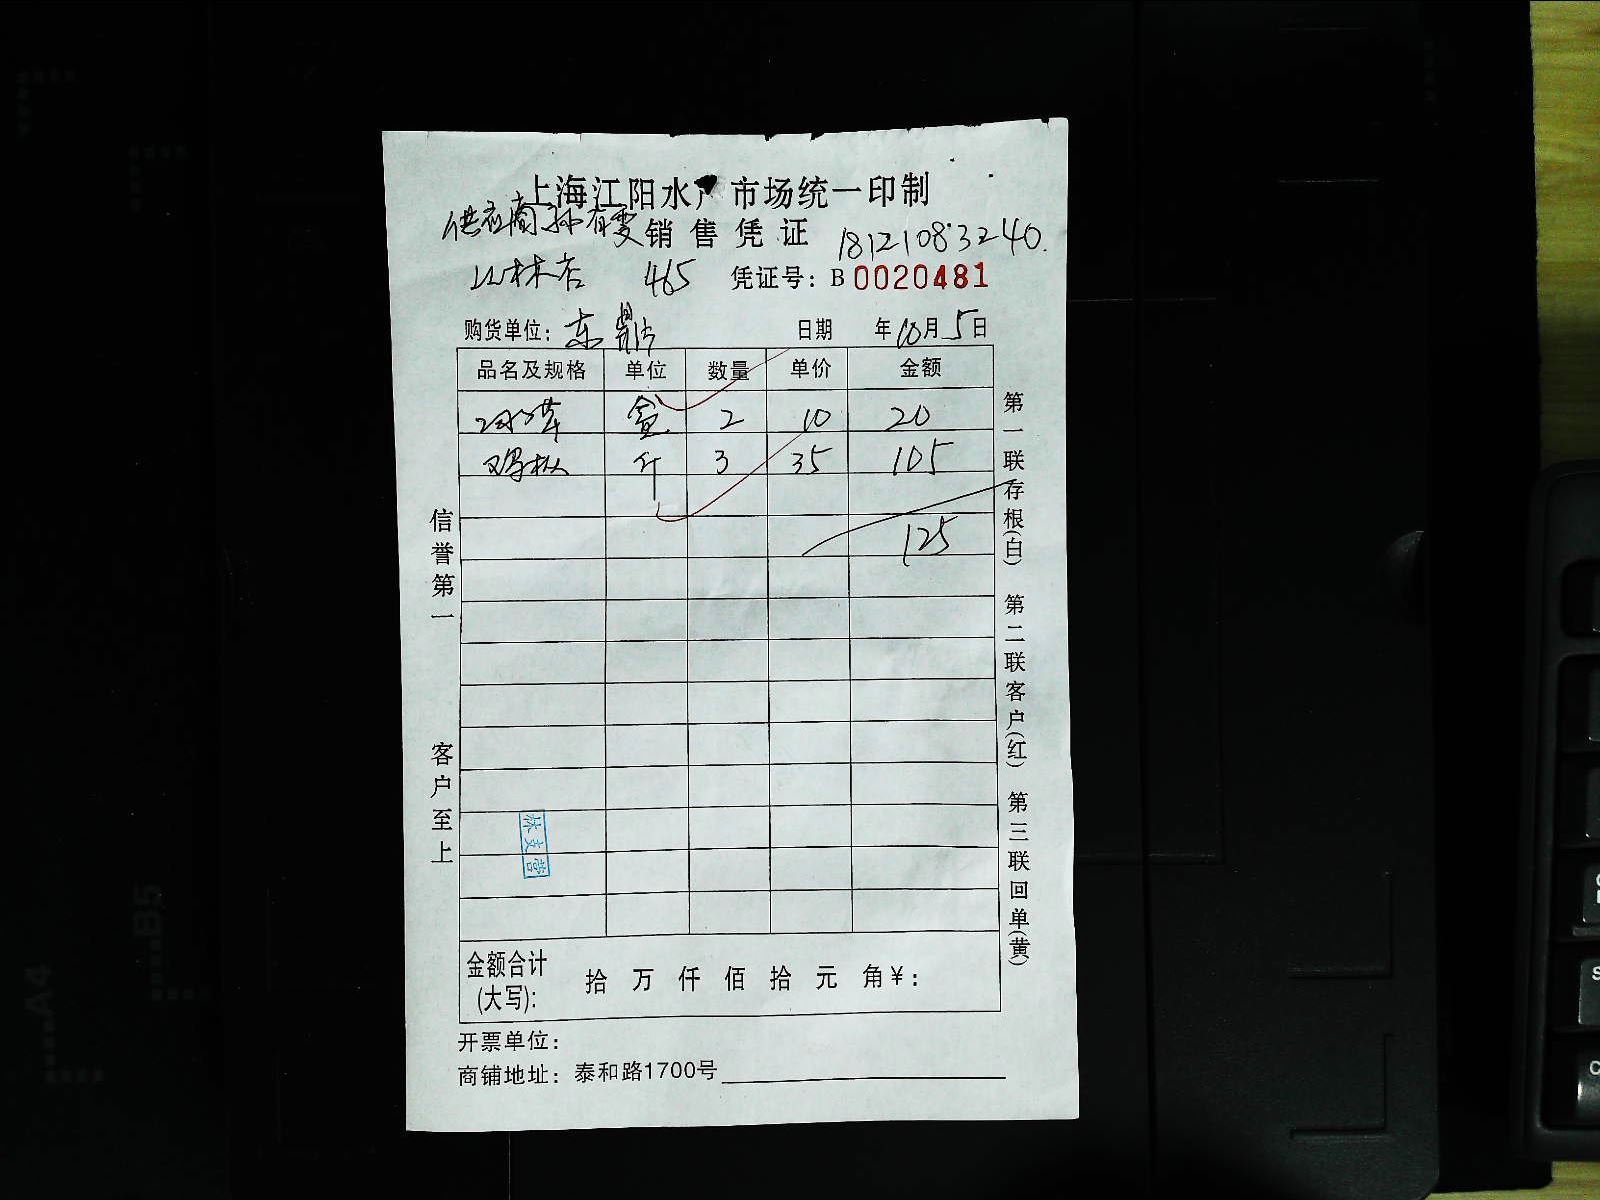 上海江阳水产市场统一印制
供应商孙有雯 销售凭证 18121083240.
林店 465 凭证号：B 0020481
购货单位：东 日期 年10月5日
品名及规格 单位 数量 单价 金额
盒 2 10 20
鸡枞 斤 3 35 105
125
信誉第一
客户至上
第一联存根(白) 第二联客户(红) 第三联回单(黄)
金额合计
(大写)： 拾 万 仟 佰 拾 元 角¥：
开票单位：
商铺地址：泰和路1700号